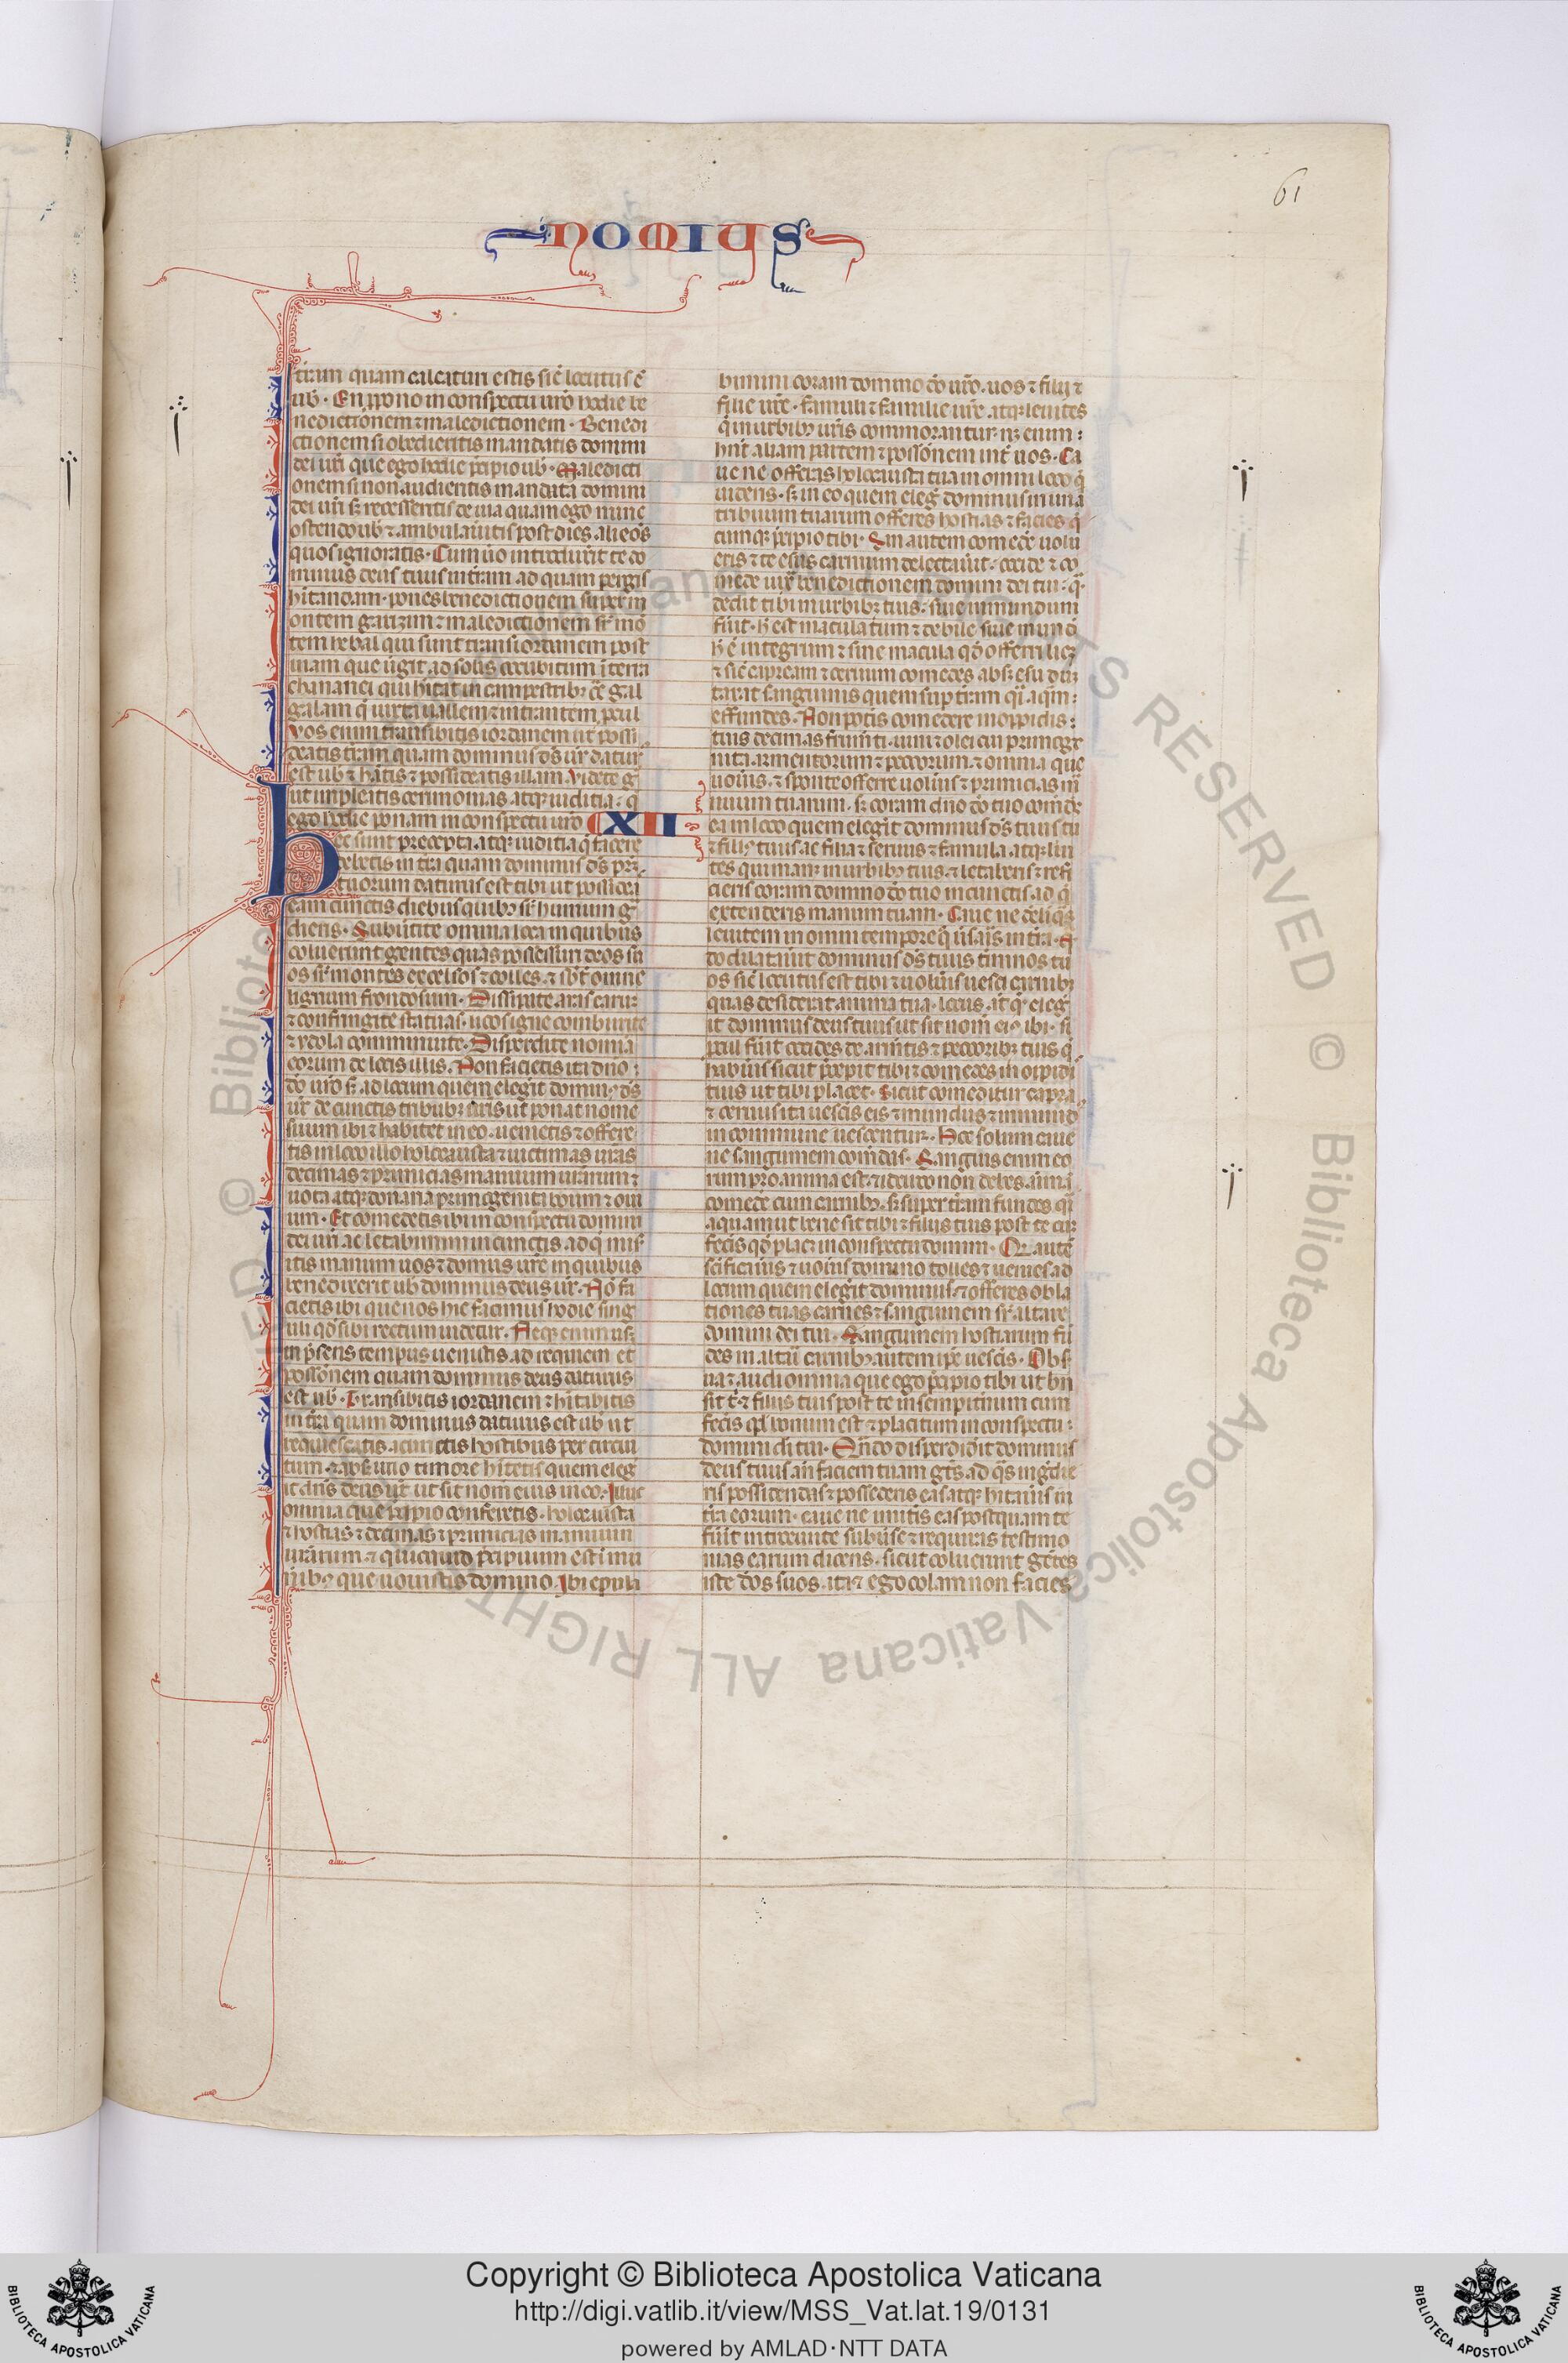 61
NOMIUS
tram quam calcaturi estis sic̄ locutus ē
ub̄. En p̄pono in conspectu ur̄o hodie be
nedictionem ⁊ maledictionem. Benedi
ctionem si obedieritis mandatis domini
dei ur̄i que ego hodie p̄cipio ub̄. Maledicti
onem si non audieritis mandata domini
dei ur̄i s̄ recesseritis de uia quam ego nunc
ostendo ub̄ ⁊ ambulaueritis post deos alienos
quos ignoratis. Cum u̓o introduxerit te do
minus deus tuus in tr̄am ad quam pergis
hītandam. pones benedictionem super m
ontem garizim ⁊ maledictionem sr̄ mō
tem hebal qui sunt trans iordanem post
uiam que u̓git ad solis occubitum ī terra
chananei qui hītat in campestribꝫ cōt̄ gal
galam q̄ iuxta uallem ⁊ intrantem pcul
Vos enim transibitis iordanem ut possi
deatis tr̄am quam dominus ds̄ ur̄ datur̄
est ub̄ ⁊ hēatis ⁊ possideatis illam. Videte g̊
ut impleatis cerimonias atqꝫ iuditia. q̄
ego hodie ponam in conspectu uro XII
Hec sunt precepta atqꝫ iuditia q̄ facere
debetis in tr̄a quam dominus ds̄ pr̄
tuorum daturus est tibi ut possidea
eam cunctis diebus quibꝫ sr̄ humum g̊
dieris. Subu̓tite omnia loca in quibus
coluerunt gentes quas possessuri deos su
os sr̄ montes excelsos ⁊ colles ⁊ sbt̄ omne
lignum frondosum. Dissipate aras earum
⁊ confringite statuas. lucos igne comburite
⁊ ydola comminuite. Disperdite nomina
eorum de locis illis. Non facietis ita dn̄o
dō uro s̄ ad locum quem elegit dominꝰ ds̄
ur̄ de cunctis tribubꝫ ur̄is ut ponat nomē
suum ibi ⁊ habitet in eo. uenietis ⁊ offere
tis in loco illo holocausta ⁊ uictimas ur̄as
decimas ⁊ primicias manuum ur̄arum ⁊
uota atqꝫ donaria primogenita boum ⁊ oui
um. Et comedetis ibi in conspectu domini
dei ur̄i ac letabimini in cunctis ad q̄ mis̄
itis manum uos ⁊ domus ur̄e in quibus
benedixerit ub̄ dominus deus ur̄. Nō fa
cietis ibi que nos hic facimus hodie sing
uli qd̄ sibi rectum uidetur. Neqꝫ enim usqꝫ
in p̄sens tempus uenistis ad requiem et
possōnem quam dominus deus daturus
est ub̄. Transibitis iordanem ⁊ hītabitis
in tr̄a quam dominus daturus est ub̄ ut
requiescatis a cunctis hostibus per circui
tum ⁊ absqꝫ ullo timore hītetis quem eleg
it dn̄s deus ur̄ ut sit nom̄ eius in eo. Illuc
omnia que p̄cipio conferetis. holocausta
⁊ hostias ⁊ decimas ⁊ primicias manuum
ur̄arum ⁊ quicquid p̄cipuum est ī mu
nibꝫ que uouistis domino. Ibi epula
bimini coram domino dō ur̄o. uos ⁊ filij ⁊
filie ur̄e. famuli ⁊ famile ur̄e atqꝫ leuites
q̄ in urbibꝫ ur̄is commorantur. nꝫ enim
hnt̄ aliam partem ⁊ possōnem int̄ uos. Ca
ue ne offeras holocausta tua in omni loco q̄
uideris. s̄ in eo quem eleg̓ dominus in una
tribuum tuarum offeres hostias ⁊ facies q̄
cumqꝫ p̄cipio tibi. Sin autem comede̓ uolu
eris ⁊ te esus carnium delectauit. occide ⁊ co
mede iux̄ benedictionem domini dei tui. q̄
dedit tibi in urbibꝫ tuis. siue immundum
fu̓it. h̄ est maculatum ⁊ debile siue mundū
h̄ ē integrum ⁊ sine macula qd̄ offerri licꝫ
⁊ sic̄ capream ⁊ ceruum comedes absqꝫ esu dum
taxat sanguinis quem sup tr̄am q̄i aqm̄
effundes. Non potis comedere in oppidis
tuis decimas frum̄ti. uini ⁊ olei tui primoge
nita armentorum ⁊ pecorum ⁊ omnia que
uouīs. ⁊ sponte offerre uolūis ⁊ primicias m̄
nuum tuarum. s̄ coram dn̄o dō tuo comedes
ea in loco quem elegit dominus ds̄ tuus tu
⁊ filiꝰ tuus ac filia ⁊ seruus ⁊ famula atqꝫ leui
tes qui manꝫ in urbibꝫ tuis. ⁊ letaberis ⁊ refi
cieris coram domino dō tuo in cunctis ad q̄
extenderis manum tuam. Caue ne delīqs̄
leuitem in omni tempore q̄ u̓saīs in tr̄a. q̄
do dilatau̓it dominus ds̄ tuus t̓minos tu
os sic̄ locutus est tibi ⁊ uolūis uesci carnibꝫ
quas desiderat anima tua. locus āt q̄ eleg̓
it dominus deus tuus ut sit nom̄ eiꝰ ibi. si
pcul fu̓it occides de arm̄tis ⁊ pecoribꝫ tuis q̄
habūis sicut p̄cepit tibi ⁊ comedes in oipidi
tuis ut tibi placet. Sicut comeditur caprea
⁊ ceruus ita uescēis eis ⁊ mundus ⁊ immūdꝰ
in commune uescentur. Hoc solum caue
ne sanguinem comedas. Sanguis enim eo
rum pro anima est. ⁊ idcirco non debes aīam
comede̓ cum carnibꝫ. s̄ super tr̄am fundes q̄i
aquam ut bene sit tibi ⁊ filijs tuis post te cū
fecīs qd̄ placꝫ in conspectu domini. Q̄ autē
scīficauīs ⁊ uouīs domino tolles ⁊ uenies ad
locum quem elegit dominus. ⁊ offeres obla
tiones tuas carnes ⁊ sanguinem sr̄ altare
domini dei tui. Sanguinem hostiarum fū
des in altari carnibꝫ autem ip̄e uescēis. Obs̄
ua ⁊ audi omnia que ego p̄cipio tibi ut bn̄
sit t̓ ⁊ filiis tuis post te in sempit̓num cum
fecīs qd̄ bonum est ⁊ placitum in conspectu
domini dī tui. Qn̄do disperdid̓it dominus
deus tuus an̄ faciem tuam gt̄es ad q̄s ing̓die
ris possidendas ⁊ possederis eas atqꝫ hītauīs in
tr̄a eorum. caue ne imitēis eas postquam te
fu̓int introeunte subu̓se ⁊ requiras cerimo
nias earum dicens. sicut coluerunt gētes
iste deos suos. ita ⁊ ego colam non facies
Copyright © Biblioteca Apostolica Vaticana
http://digi.vatlib.it/view/MSS_Vat.lat.19/0131
powered by AMLAD·NTT DATA
BIBLIOTECA APOSTOLICA VATICANA
BIBLIOTECA APOSTOLICA VATICANA